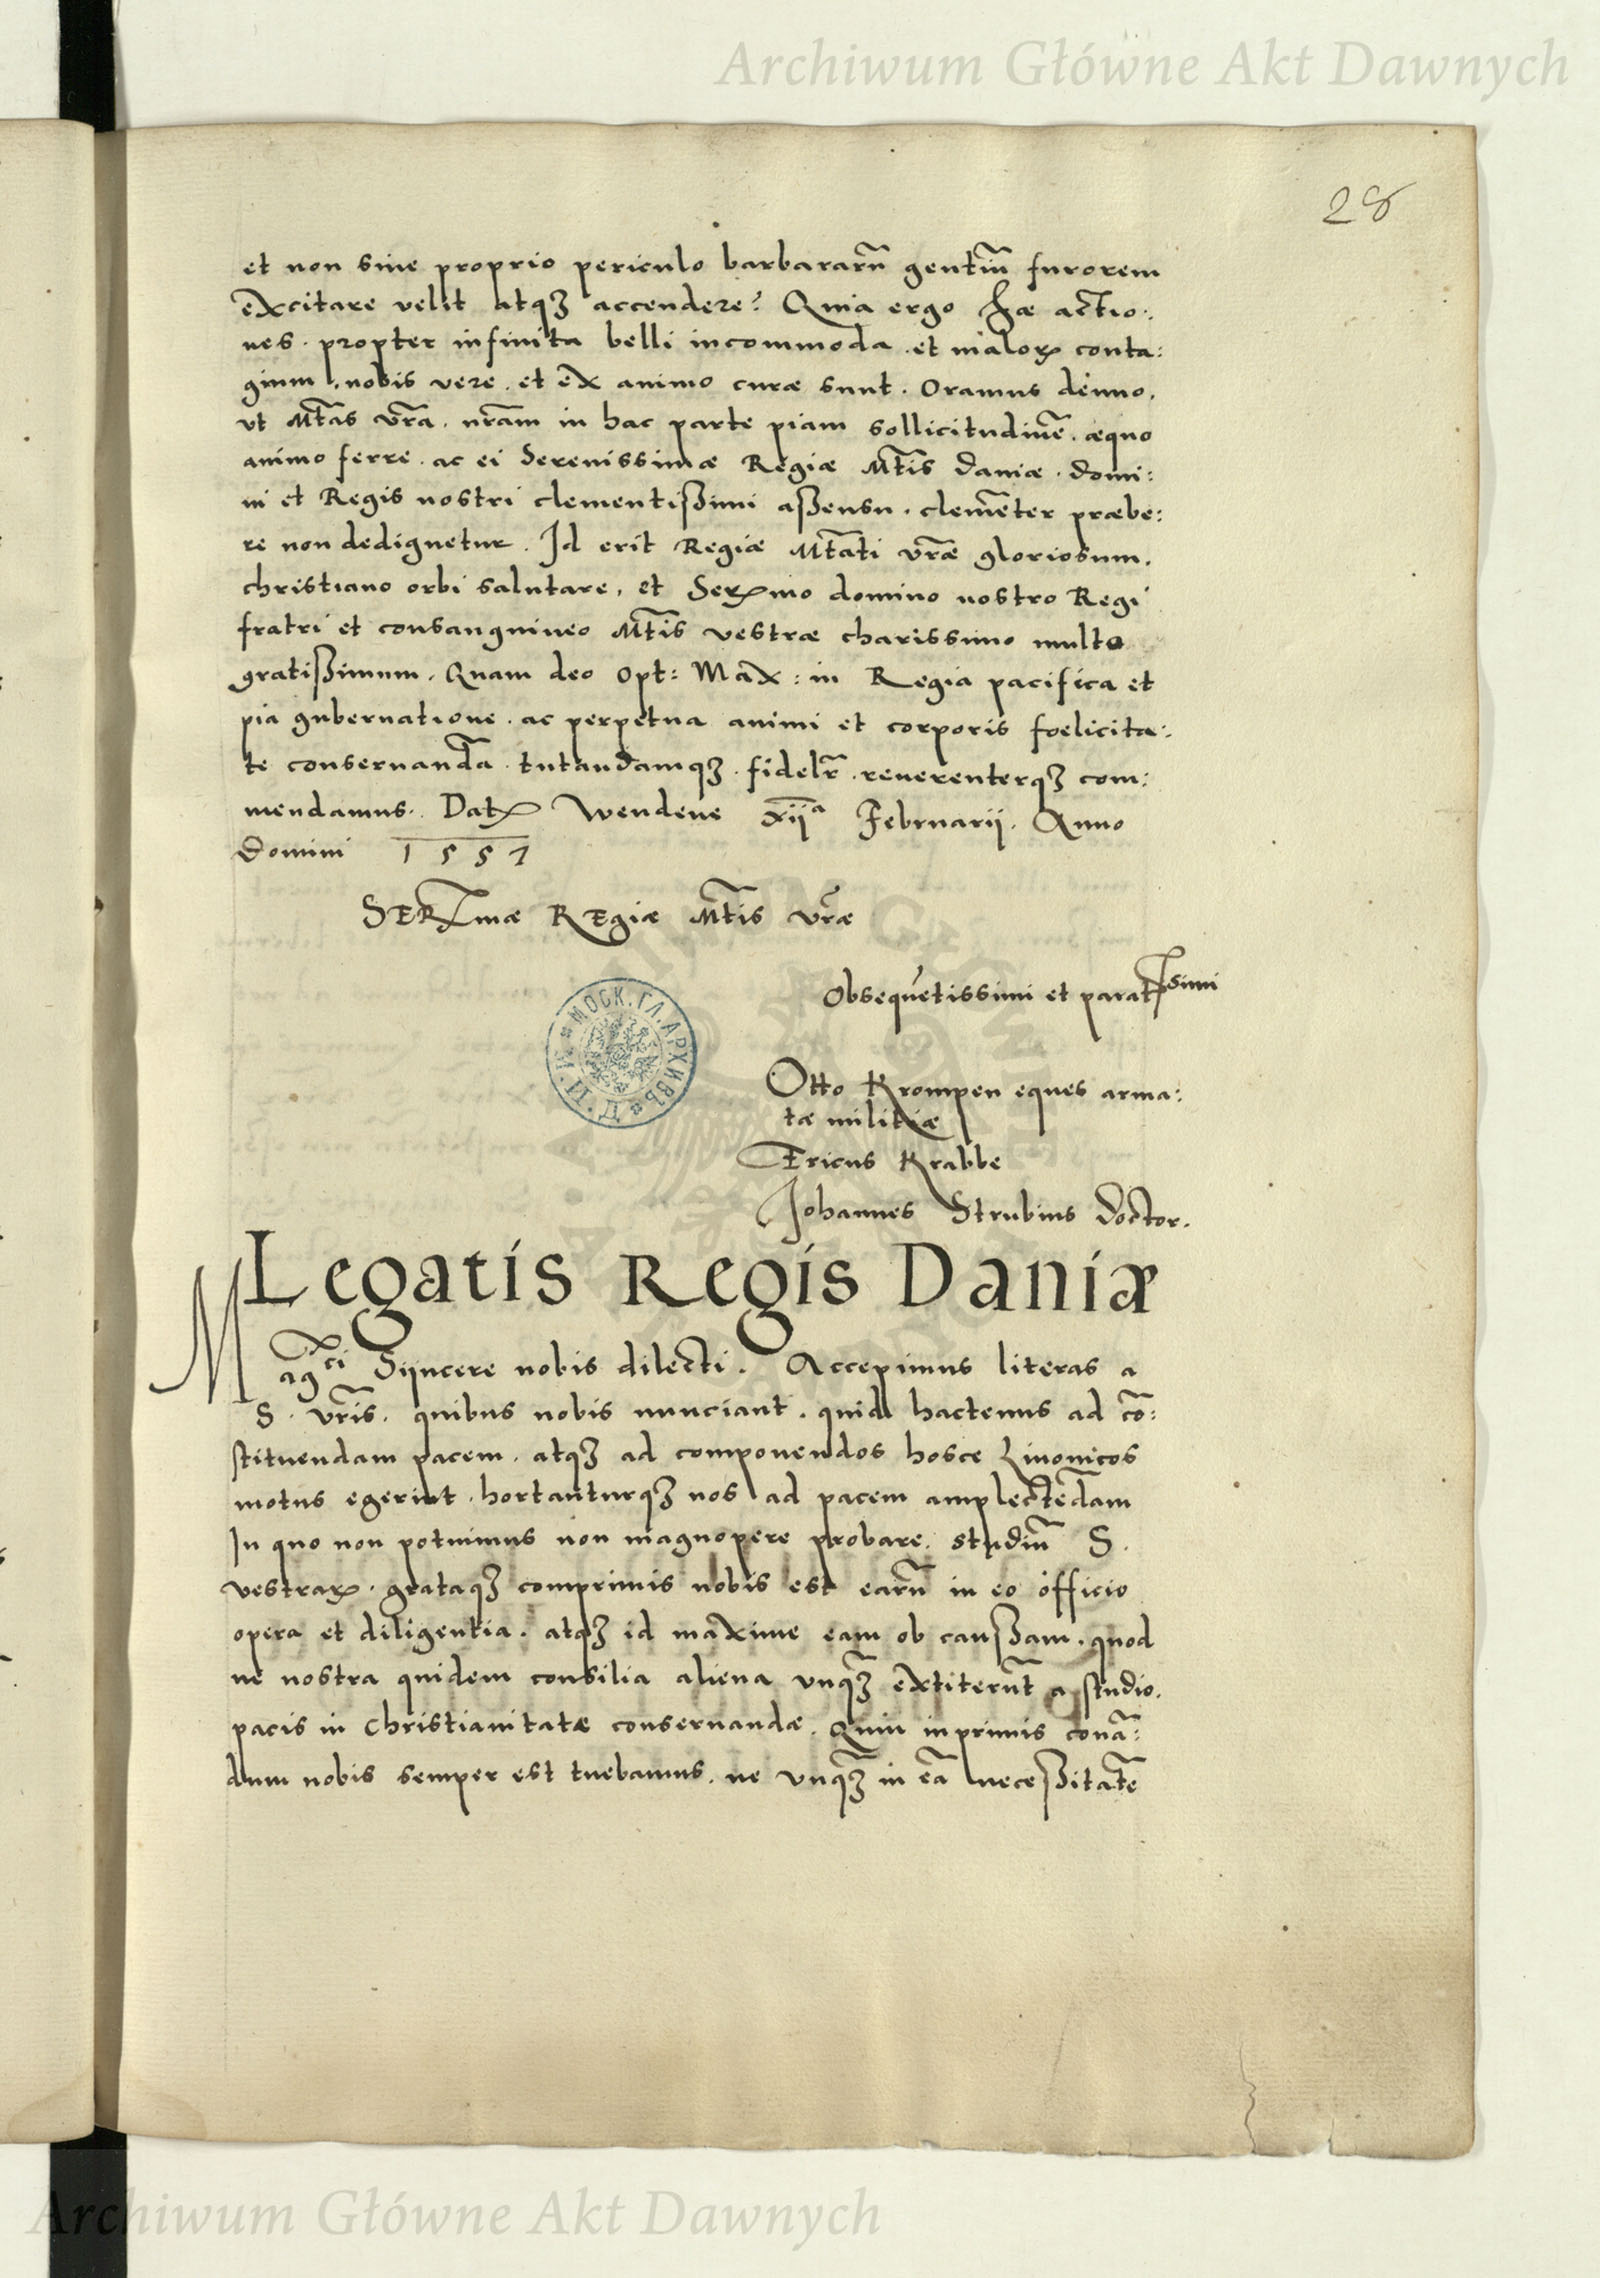 Archiwum Główne Akt Dawnych
28
et non sine proprio periculo barbararū gentiū furorem
excitare velit atqꝫ accendere? Quia ergo hæ actio:
nes. propter infinita belli incommoda. et maloꝝ conta:
gium, nobis vere. et ex animo curæ sunt. Oramus denuo.
vt Mt̃as vr̃a. nr̃am in hac parte piam sollicitudinē. æquo
animo ferre. ac ei Serenissimæ Regiæ Mt̃is Daniæ. domi:
ni et Regis nostri clementißimi aßensu. clemēter præbe:
re non dedignetur. Id erit Regiæ Mt̃ati vr̃æ gloriosum.
christiano orbi salutare, et Serꝝmo domino nostro Regi
fratri et consanguineo Mt̃is vestræ charissimo multo
gratißimum. Quam deo Opt: Max: in Regia pacifica et
pia gubernatione. ac perpetua animi et corporis fœlicita:
te conseruanda. tutandamqꝫ. fidelr̃. reuerenterqꝫ com:
mendamus. Datꝝ Wendene xijᵃ Februarij. Anno
Domini 1557
SERꝝmæ REgiæ Mt̃is vr̃æ
Obsequētissimi et paratissimi
МОСК. ГЛ. АРХИВЪ
Otto Krompen eques arma:
tæ militiæ
Ericus Krabbe
Johannes Strubius Doctor.
Legatis Regis Daniæ
Magci Sijncere nobis dilecti. Accepimus literas a
S. vr̃is. quibus nobis nunciant. quid hactenus ad cō:
stituendam pacem. atqꝫ ad componendos hosce Liuonicos
motus egerint. hortanturqꝫ nos ad pacem amplectēdam
In quo non potuimus non magnopere probare. studiū S.
vestraꝝ. grataqꝫ comprimis nobis est earū in eo officio
opera et diligentia. atqꝫ id maxime eam ob caußam. quod
ne nostra quidem consilia aliena vnqꝫ̃ extiterūt a studio.
pacis in Christianitatæ conseruandæ. Quin inprimis conā:
dum nobis semper est tuebamus. ne vnqꝫ̃ in eā neceßitatē
Archiwum Główne Akt Dawnych